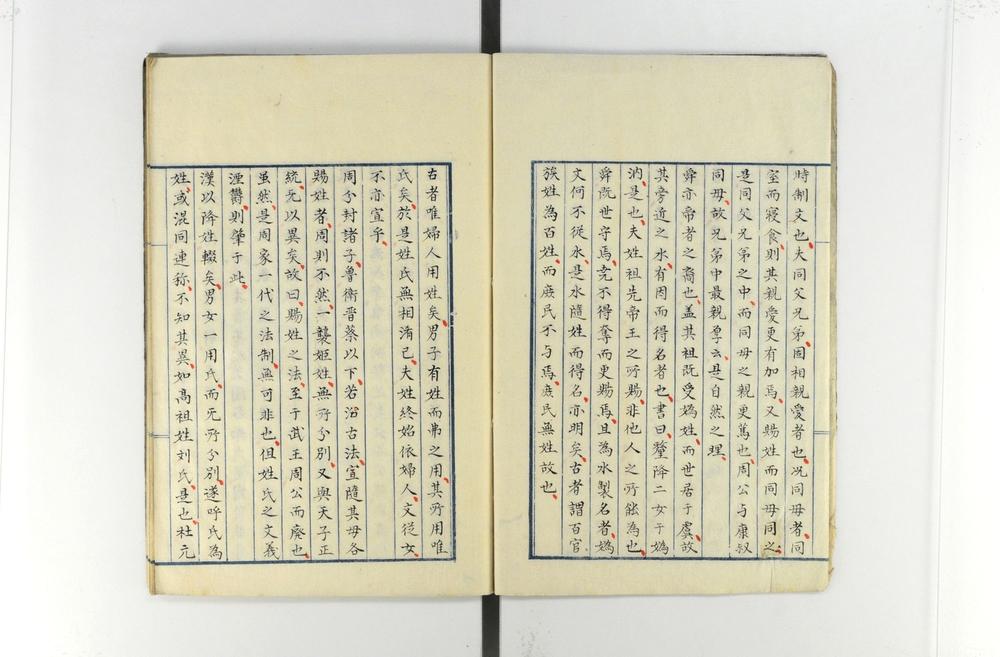 時制文也夫同父兄弟固相親愛者也况同毋者同
室而寝食則其親愛更有加焉又賜姓而同毋同之
是同父兄弟之中而同毋之親更篤也周公与康叔
同毋故兄弟中最親厚云是自然之理
舜亦帝者之裔也盖其祖既受嬀姓而世居于虞故
其旁近之水有因而得名者也書曰釐降二女于嬀
汭是也夫姓祖先帝王之所賜非他人之所能為也
舜既世守焉尭不得奪而更賜焉且為水製名者嬀
文何不從水是水隨姓而得名亦明矣古者謂百官
族姓為百姓而庶民不与焉庶民無姓故也
古者唯婦人用姓矣男子有姓而弗之用其所用唯
氏矣於是姓氏無相淆已夫姓終始依婦人文従女
不亦宣乎
周分封諸子魯衛晋蔡以下若沿古法宣隨其毋各
賜姓者周則不然一襲姬姓無所分別又與天子正
統无以異矣故曰賜姓之法至于武王周公而廢也
虽然是周家一代之法制無可非也但姓氏之文義
湮欝則肇于此
漢以降姓輟矣男女一用氏而无所分別遂呼氏為
姓或混同連称不知其異如高祖姓刘氏是也杜元